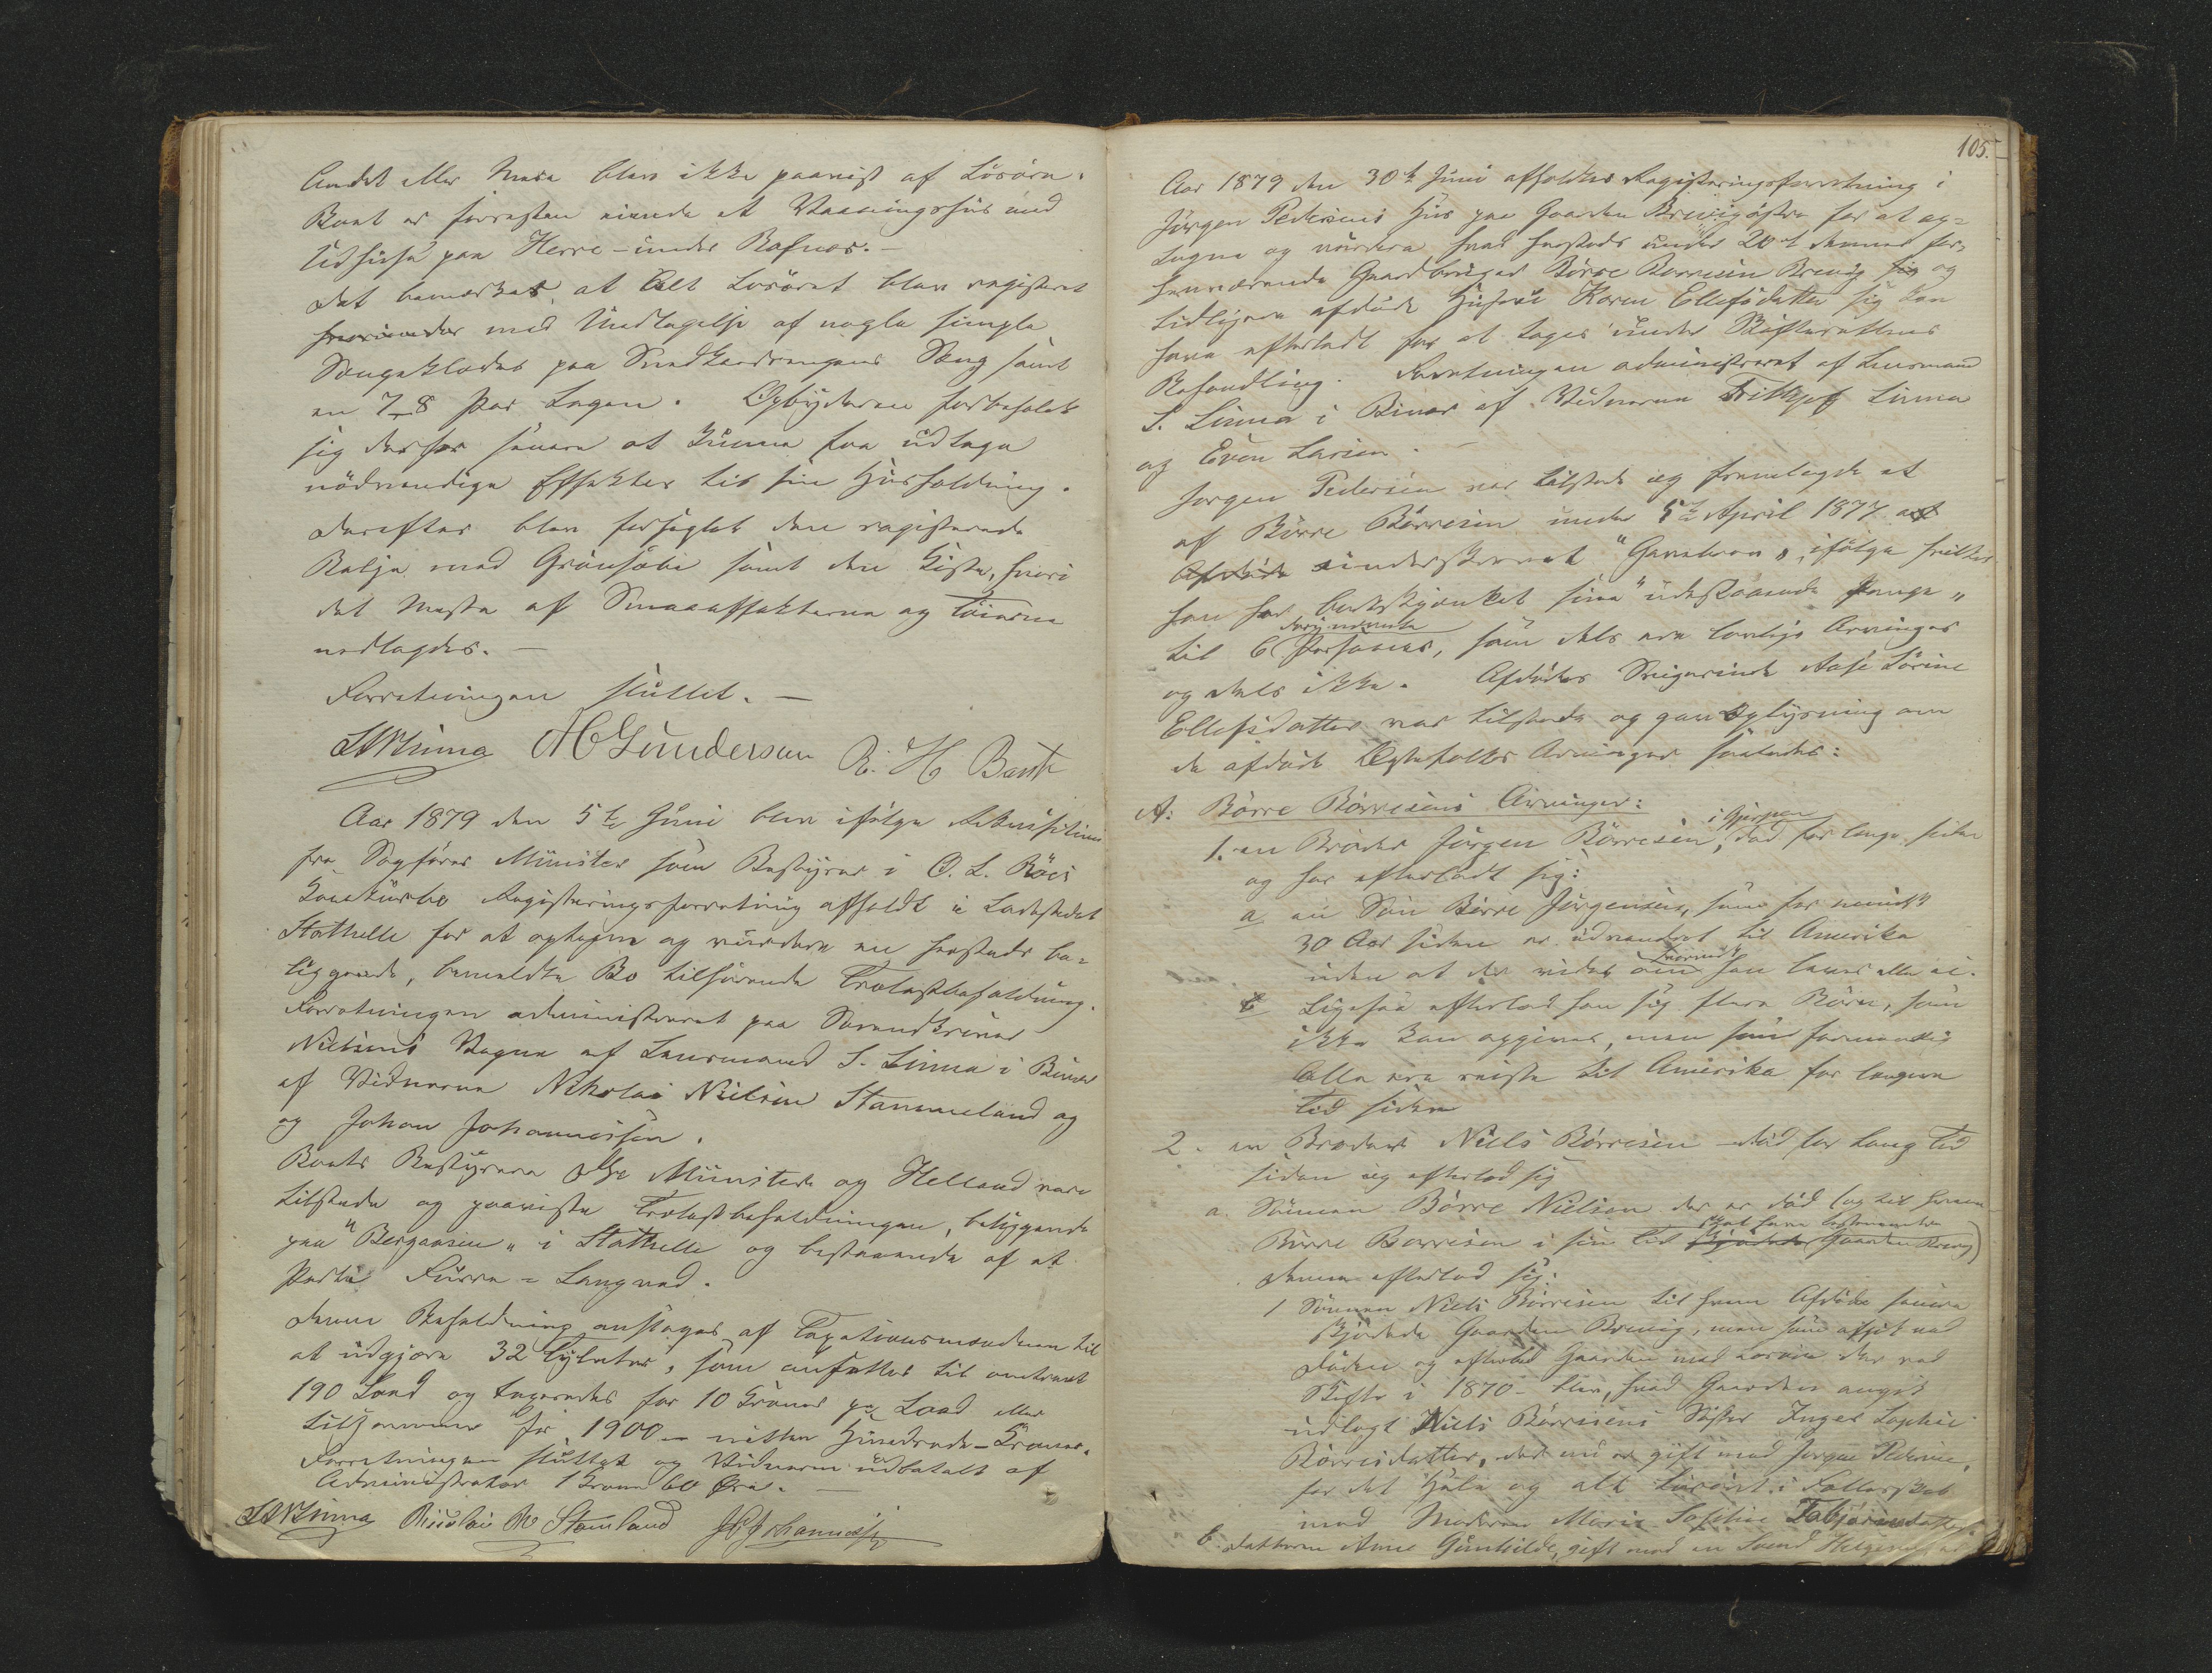 Andet eller Mere blev ikke paavist af Løsøre.
Boet er forresten eiende et Vaaningshus med
Udhuse paa Herre under Rafnæs.
Det bemærkes, at Alt Løsøret blev registeret
herunder med Undtagelse af nogle simple
Sengeklæder paa Smedkardrengens Seng samt
en 7_8 Par Lagen. Opbyderen forbeholdt
sig derfor senere at kunne faa udtage
nødvendige Effekter til sin Husholdning.
Derefter blev forseglet den registerede
Balje med Grønsæbe samt den Kiste, hvori
det Meste af Smaaeffekterne og Tøierne
nedlagdes. —
Forretningen sluttet. —
Linna A C Gundersen R. H.
Aar 1879 den 5te Juni blev ifølge Rekvisition
fra Sagfører Münster som Bestyrer i O. L. Røes
Konkursbo Registeringsforretning afholdt i Ladestedet
Stathelle for at optegne og vurdere en hersteds be=
liggende, bemeldte Bo tilhørende Trælastbeholdning.
Forretningen administreret paa Sorenskriver
Nielsens Vegne af Lensmand S. Linna i Biværelse
af Vidnerne Nikolai Nielsen Stammeland og
og Johan Johannessen.
Boets Bestyrere Hr Münster og Helland vare
tilstede og paaviste Trælastbeholdningen, beliggende
paa "Bergansøen" i Stathelle og bestaaende af et
Parti Furre = Langved.
Denne Beholdning ansloges af Taxationsmændene til
at udgjøre 32 Tylvter, som ansættes til omtrent
190 Lood og taxeredes for 10 Kroner pr Lood eller
tilsammen for 1900 — nitten Hundrede – Kroner.
Forretningen sluttet og Vidnerne udbetalt af
Administrator 1 Krone 60 Øre. —
Linna Nicolai N Stamland J Johannesen
105.
Aar 1879 den 30te Juni afholdtes Registeringsforretning i
Jørgen Pedersens Hus paa Gaarden Brevig østre for at op=
tegne og vurdere hvad hersteds under 20de dennes for=
henværende Gaardbruger Børre Borresen Brevig sig og
tidligere afdøde Hustru Karen Ellefsdatter sig kan
have efterladt for at tages under Skifterettens
Behandling. Forretningen administreret af Lensmand
S. Linna i Bivær af Vidnerne Frithjof Linna
og Even Larsen. —
Jørgen Pedersen var tilstede og fremlagde et
af Børre Børresen under 5te April 1877 et
Afdøde underskrevet "Gavebrev", ifølge hvilket
han har bortskjænket sine "udestaaende Penge"
deri nævnte
til 6 Personer, som dels ere lovlige Arvinger
og dels ikke. Afdødes Svigerinde Aase Lovine
Ellefsdatter var tilstede og gav Oplysning om
de afdøde Ægtefolks Arvinger saaledes:
A: Børre Børresens Arvinger:
i Gjerpen
1. en Broder Jørgen Børresen, død for længe siden
og har efterladt sig:
a en Søn Børre Jørgensen, som for mindst
30 Aar siden er udvandret til Amerika
uden at der vides om han lever eller ei.
b Ligesaa efterlod han sig flere Børn, som
ikke kan opgives, men som formentlig
Alle ere reiste til Amerika for længere
Tid siden
2. en Broder Niels Børresen – død for lang Tid
siden og efterlod sig
a. Sønnen Børre Nielsen der er død (og til hvem
skal have testamenteret
Børre Borresen i sin Tid skjødede Gaarden Brevig)
Denne efterlod sig:
1 Sønnen Niels Børresen til hvem Afdøde senere
skjødede Gaarden Brevig, men som afgik ved
Døden og efterlod Gaarden med Løsøre der ved
Skifte i 1870 – blev, hvad Gaarden angik
udlagt Niels Børresens Søster Inger Sophie
Børresdatter, der nu er gift med Jørgen Pedersen,
for det Hele og alt Løsøret i Fællesskab
med Moderen Maria Sophie
b. Datteren Anne Gunhilde, gift med en Svend Helgesen